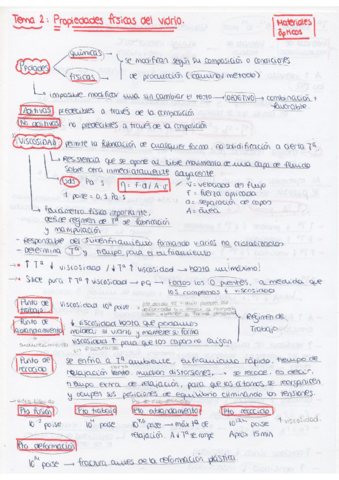 Tema 2: Propiedades físicas del vidrio.
Materiales ópticos
químicas
se modifican según su composición o condiciones
Ptdades
físicas
de producción (equipo/método)
imposible modificar una sin cambiar el resto → OBJETIVO → combinación + favorable
Aditivas: predecibles a través de la composición
No aditivas: no predecibles a través de la composición
VISCOSIDAD
permite la fabricación de cualquier forma, no solidificación a cierta Tª.
Resistencia que se opone al libre movimiento de una capa de fluido
sobre otra inmediatamente adyacente
Uds
Pa·s
η = F·d/A·v
v = velocidad del flujo
F = fuerza aplicada
1 poise = 0,1 Pa·s
d = separación de capas
A = área
Parámetro físico importante,
define régimen de Tª de fabricación
y manipulación
- Responsable del subenfriamiento formando vidrios no cristalizados
- determina Tª y tiempo para el enfriamiento
↑ Tª ↓ viscosidad / ↓ Tª ↑ viscosidad → hasta un máximo!
SiO2 puro ↑ Tª ↑ viscosidad → PG → todos los O puentes, a medida que
los rompemos ↓ viscosidad
Punto de trabajo
viscosidad 10⁴ poise
Punto de reblandecimiento
↓ viscosidad hasta que podamos
moldear el vidrio y mantener su forma
Régimen de trabajo
viscosidad ↑ para que las capas no fluyan
Punto de recocido
se enfría a Tª ambiente, enfriamiento rápido, tiempo de
relajación lento → quedan distorsiones, → se recoce, es decir,
tiempo extra de relajación, para que los átomos se reorganicen
y ocupen las posiciones de equilibrio eliminando las tensiones.
Pto fusión
Pto trabajo
Pto ablandamiento
Pto recocido
+ viscosidad.
10² poise
10⁴ poise
poise → máx Tª de
poise
relajación. A ↓ Tª se rompe
Aprox 15 min
Pto deformación
poise → fractura antes de la deformación plástica